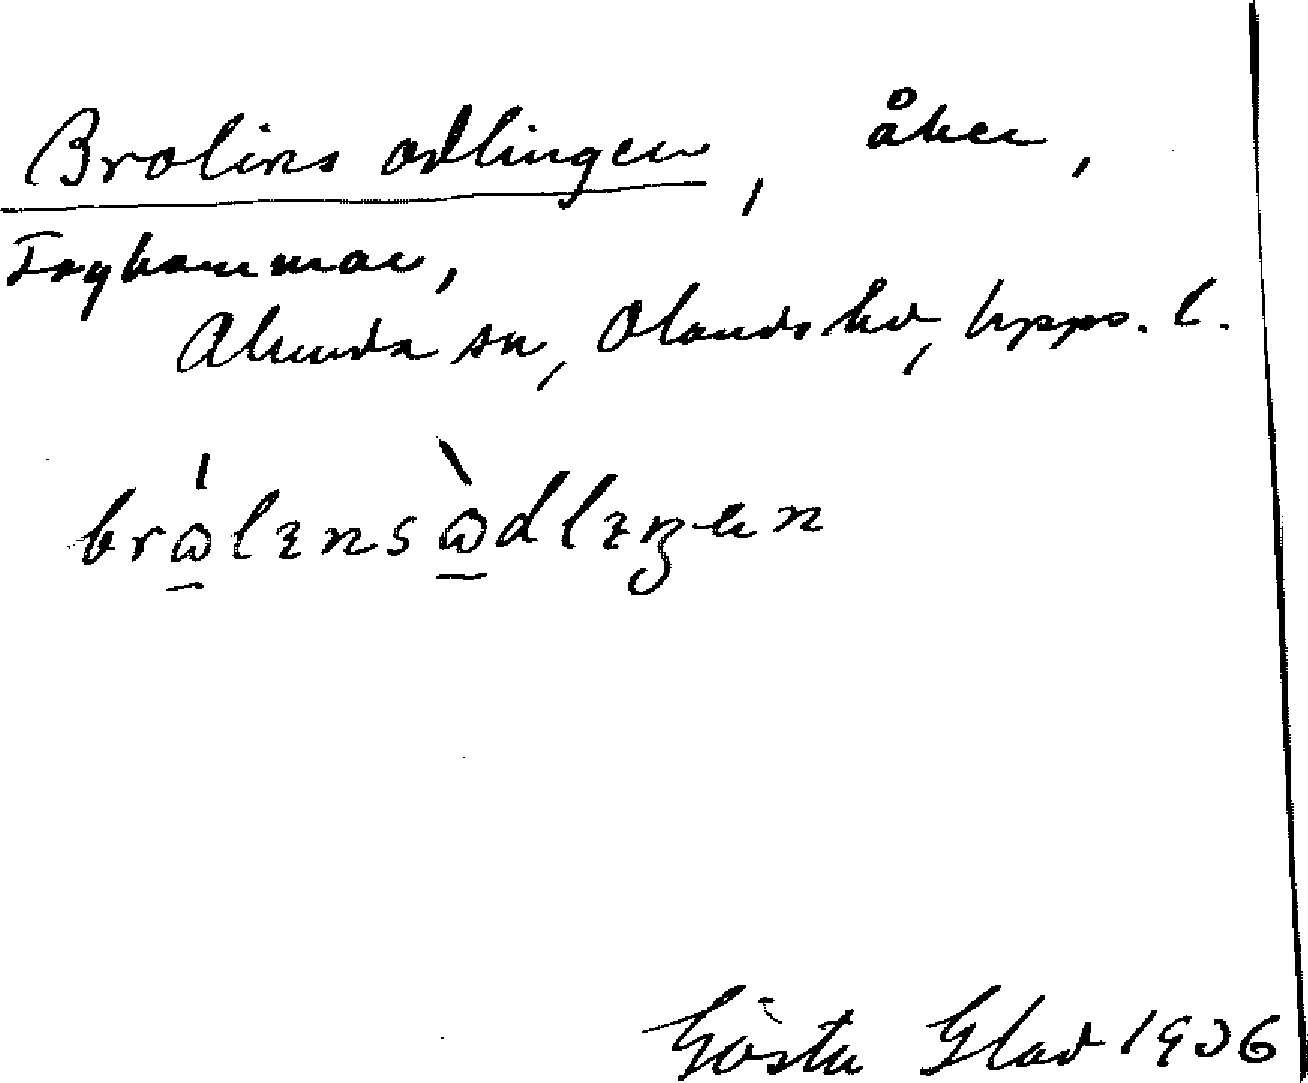 Brolins odlingen, åker,
Foghammar,
Alunda sn, Olands hd, Upps. l.
Gösta Glad 1936